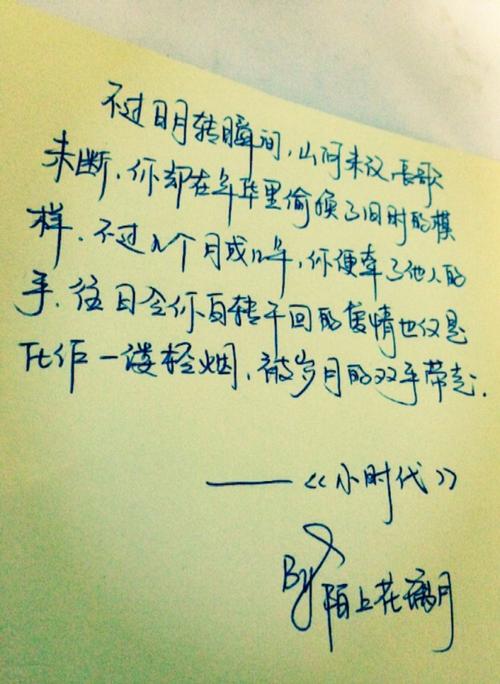 不过日月转瞬间,山河未议,长歌
未断,你却在年华里偷换了旧时的模
样,不过几个月或几年,你便牵了他人的
手,往日令你百转千回的爱情也仅是
化作一缕轻烟,被岁月的双手带走.
——《小时代》
By 陌上花离月